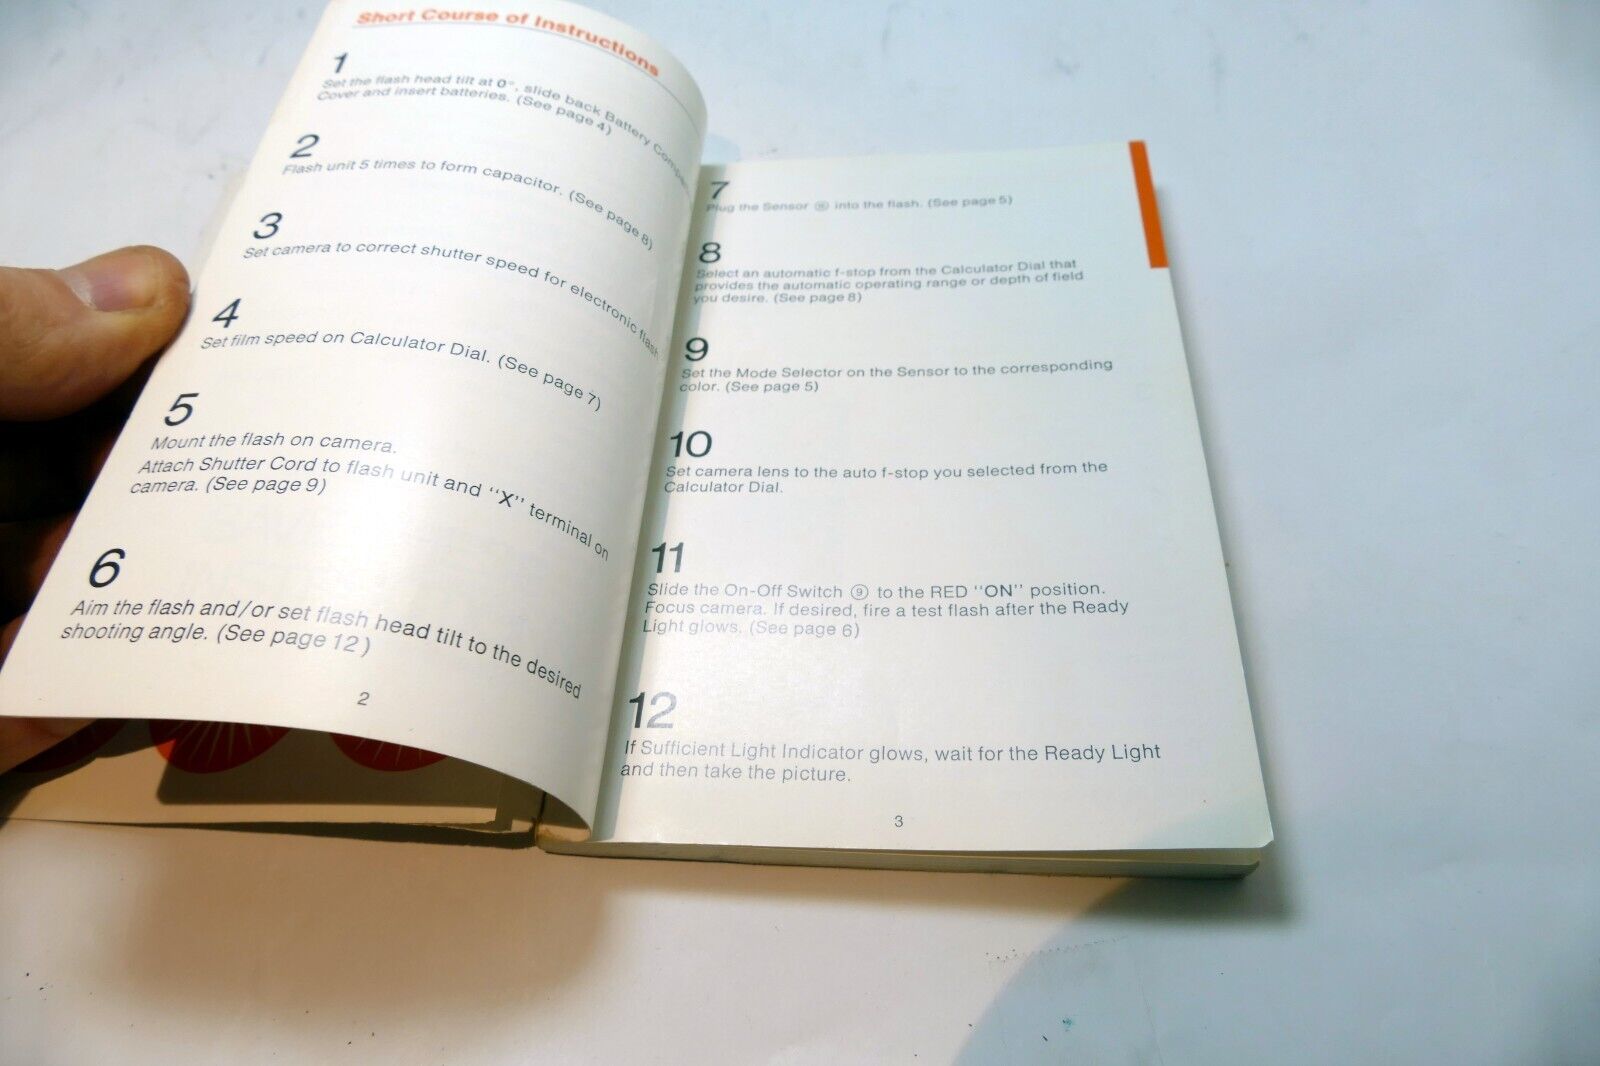 Short Course of Instructions
1
Set the flash head tilt at 0°, slide back Battery
Cover and insert batteries. (See page 4)
2
Flash unit 5 times to form capacitor. (See page 8)
3
Set camera to correct shutter speed for electronic flash
4
Set film speed on Calculator Dial. (See page 7)
5
Mount the flash on camera.
Attach Shutter Cord to flash unit and "X" terminal on
camera. (See page 9)
6
Aim the flash and/or set flash head tilt to the desired
shooting angle. (See page 12)
2
7
Plug the Sensor ⑯ into the flash. (See page 5)
8
Select an automatic f-stop from the Calculator Dial that
provides the automatic operating range or depth of field
you desire. (See page 8)
9
Set the Mode Selector on the Sensor to the corresponding
color. (See page 5)
10
Set camera lens to the auto f-stop you selected from the
Calculator Dial.
11
Slide the On-Off Switch ⑨ to the RED "ON" position.
Focus camera. If desired, fire a test flash after the Ready
Light glows. (See page 6)
12
If Sufficient Light Indicator glows, wait for the Ready Light
and then take the picture.
3